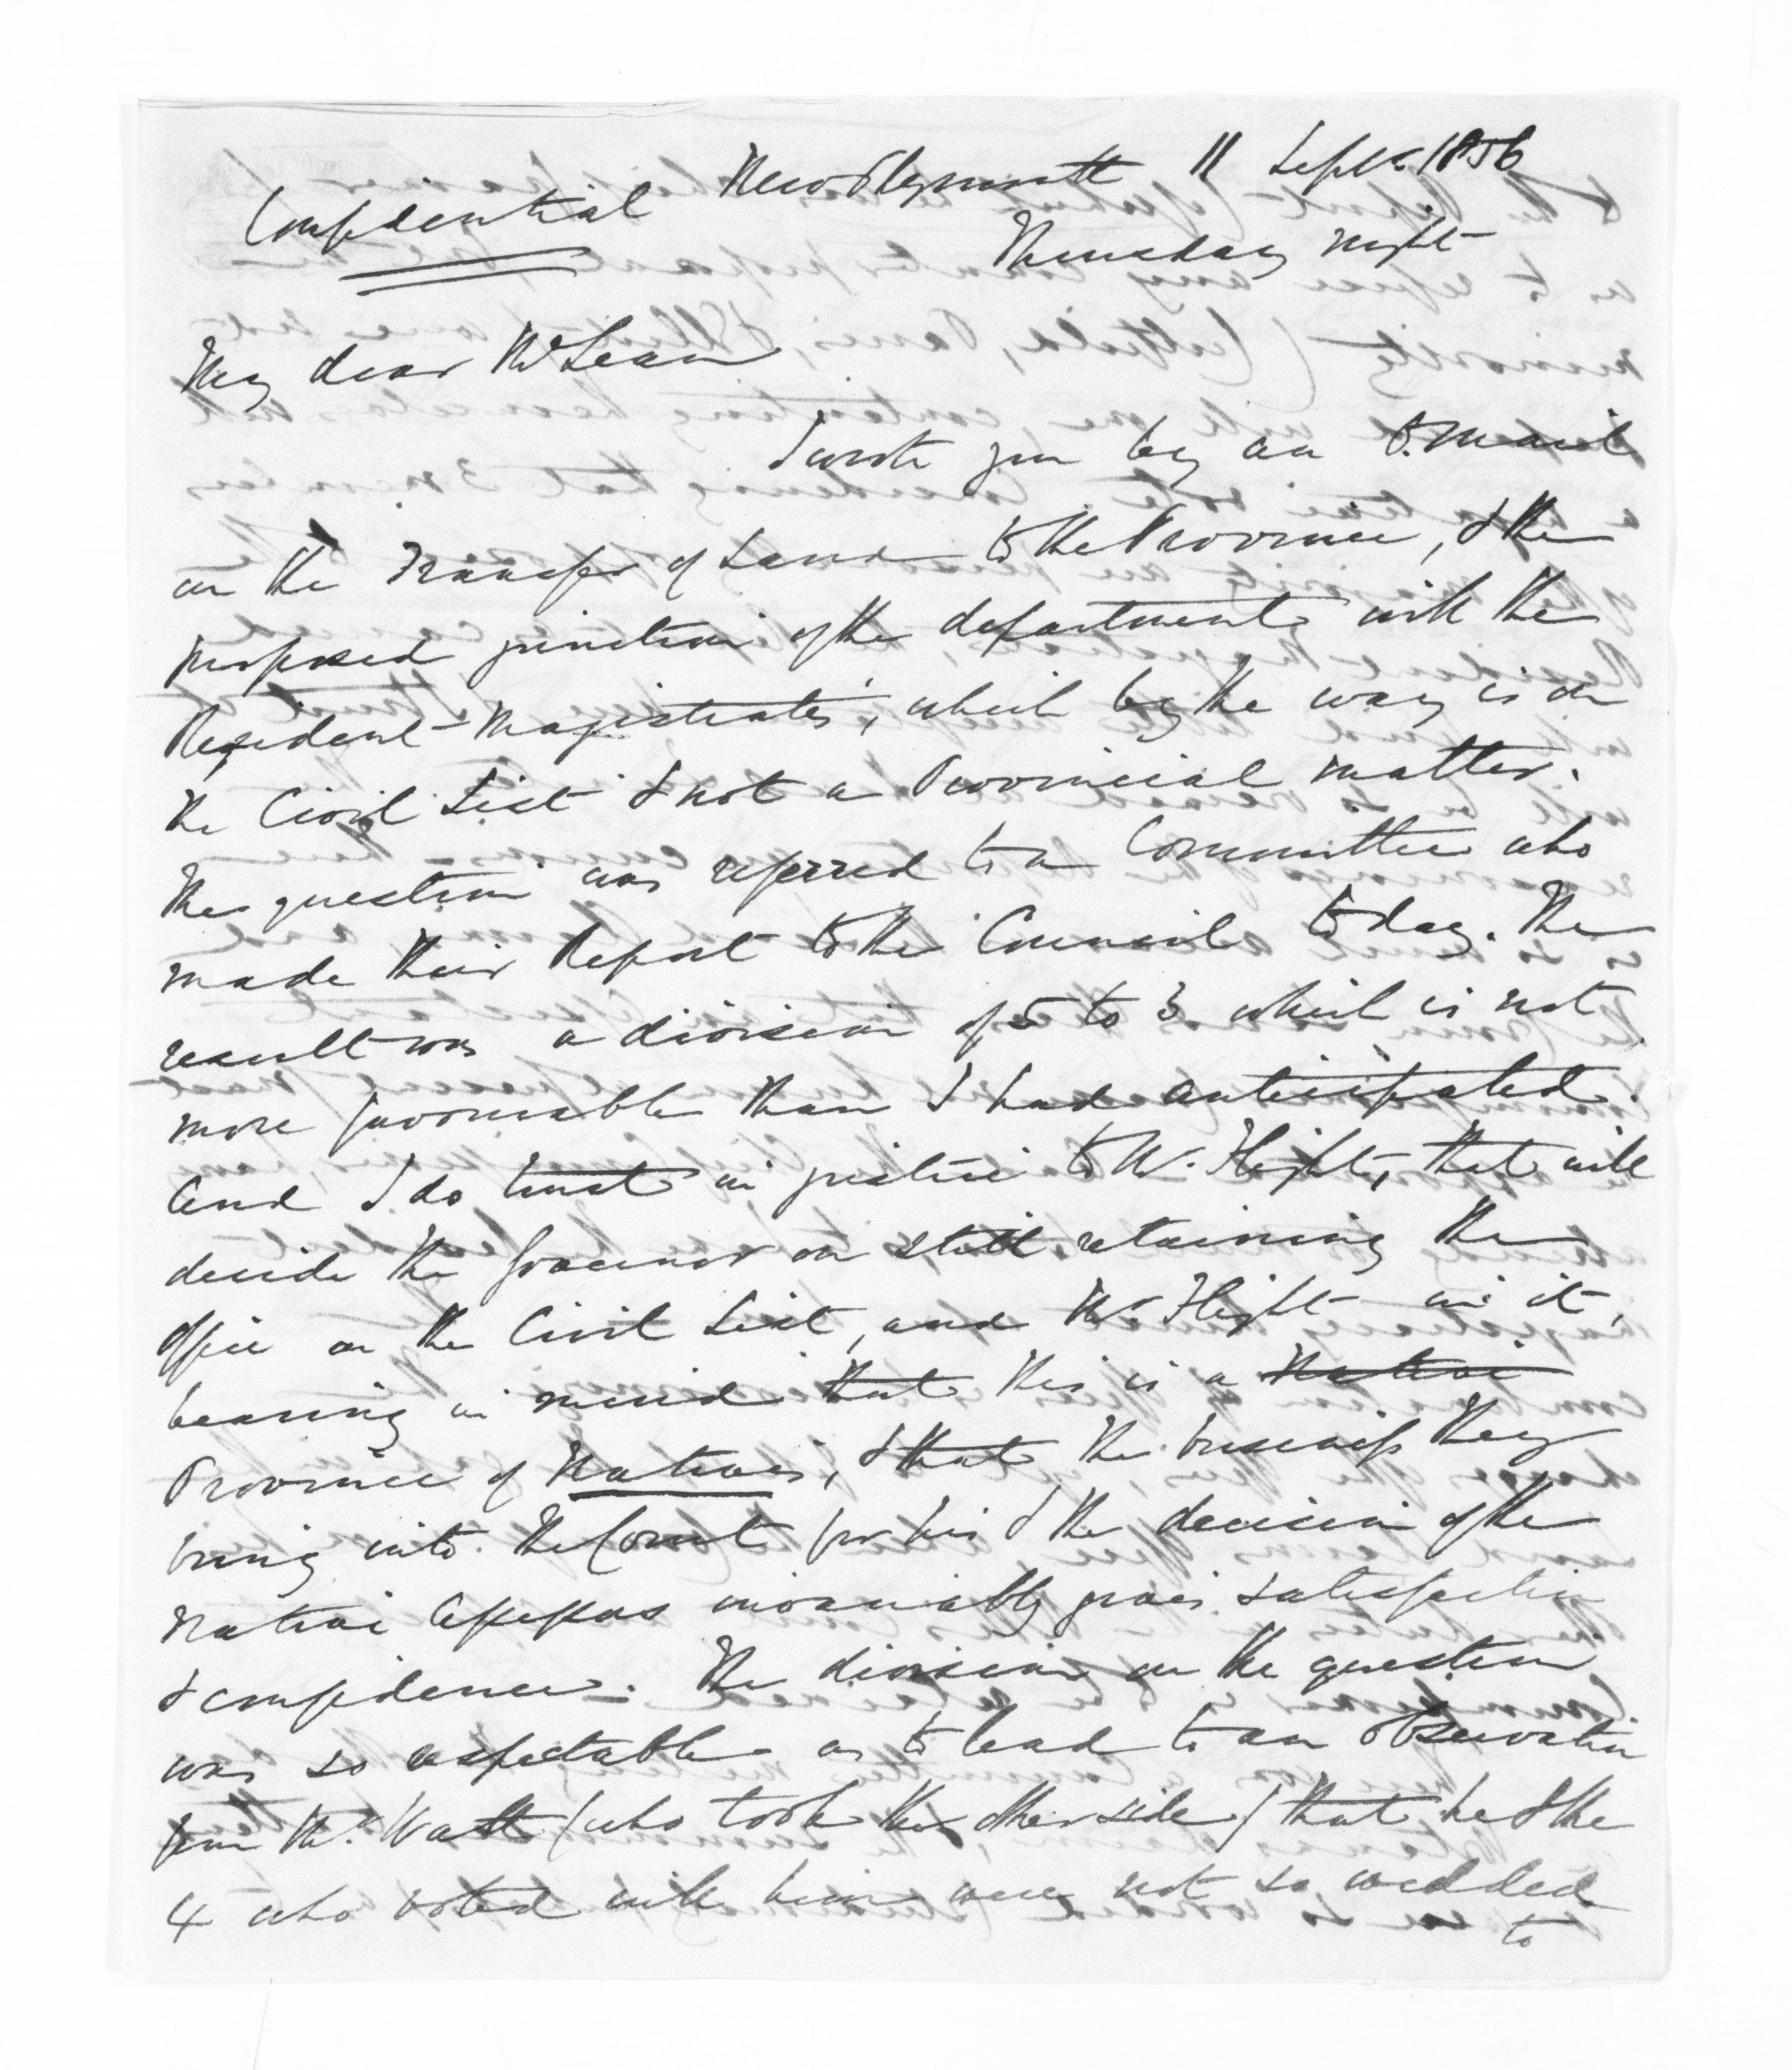 New Plymouth 11 Septr. 1856
Confidential
Thursday night
My dear McLean
I wrote you by an O. Mail
on the Transfer of Land to the Province, & the
proposed junction of the departments with the
Resident-Magistrates', which by the way is on
the Civil List & not a Provincial matter.
The question was referred to a Committee who
made their Report to the Council to day. The
result was a division of 5 to 3 which is not
more favourable than I had anticipated.
And I do trust in justice to Mr. Flight, that will
decide the Governor on still retaining the
office on the Civil List, and Mr. Flight in it,
bearing in mind that this is a Native
Province of Natives, & that the business they
bring into the Court for his & the decision of the
Native Assessors invariably gives satisfaction
& confidence. The division on the question
was so respectable as to lead to an observation
from Mr. Watt (who took the other side) that he & the
4 who voted with him were not so wedded
to